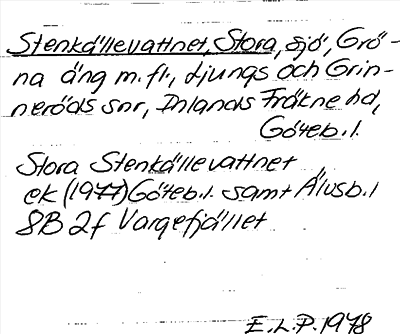 Stenkällevattnet, Stora, sjö, Grö-
na äng m.fl., Ljungs och Grin-
neröds snr, Inlands Fräkne hd,
Göteb.l.
Stora Stenkällevattnet
ek (1977) Göteb.l. samt Älvsb.l
8B 2f Vargefjället
E.L.P. 1978